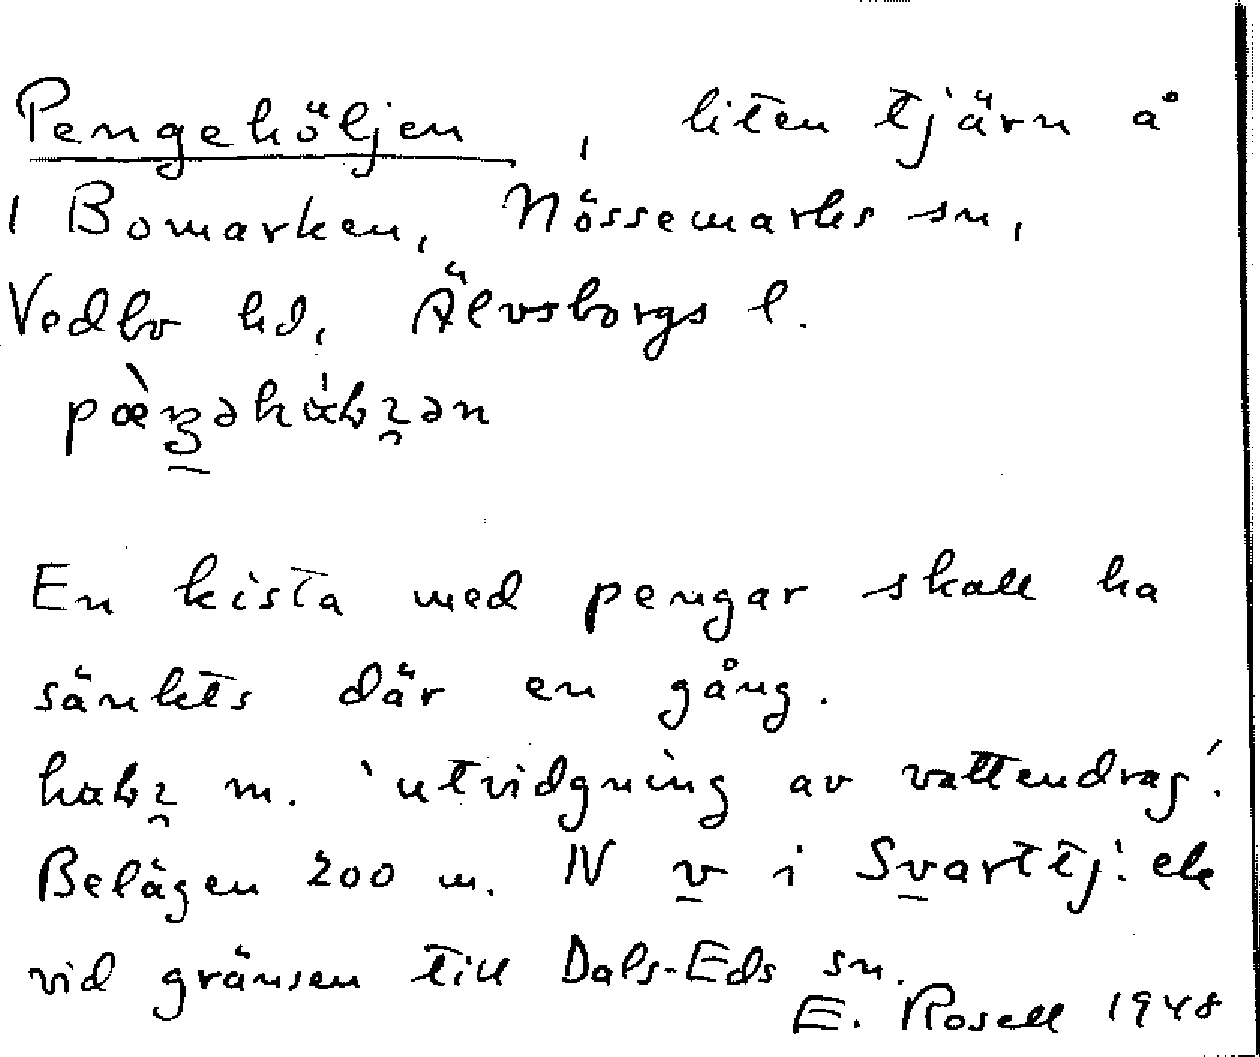 Pengehöljen, liten tjärn å
1 Bomarken, Nössemarks sn,
Vedbo hd, Älvsborgs l.
En kista med pengar skall ha
sänkts där en gång.
m. 'utvidgning av vattendrag'.
Belägen 200 m. NV v i Svarttj:ek
vid gränsen till Dals-Eds sn.
E. Rosell 1948